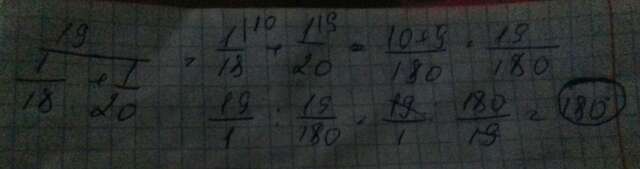 19/(1/18 + 1/20) = 1|10/18 + 1|9/20 = 10+9/180 = 19/180
19/1 : 19/180 = 19/1 · 180/19 = 180